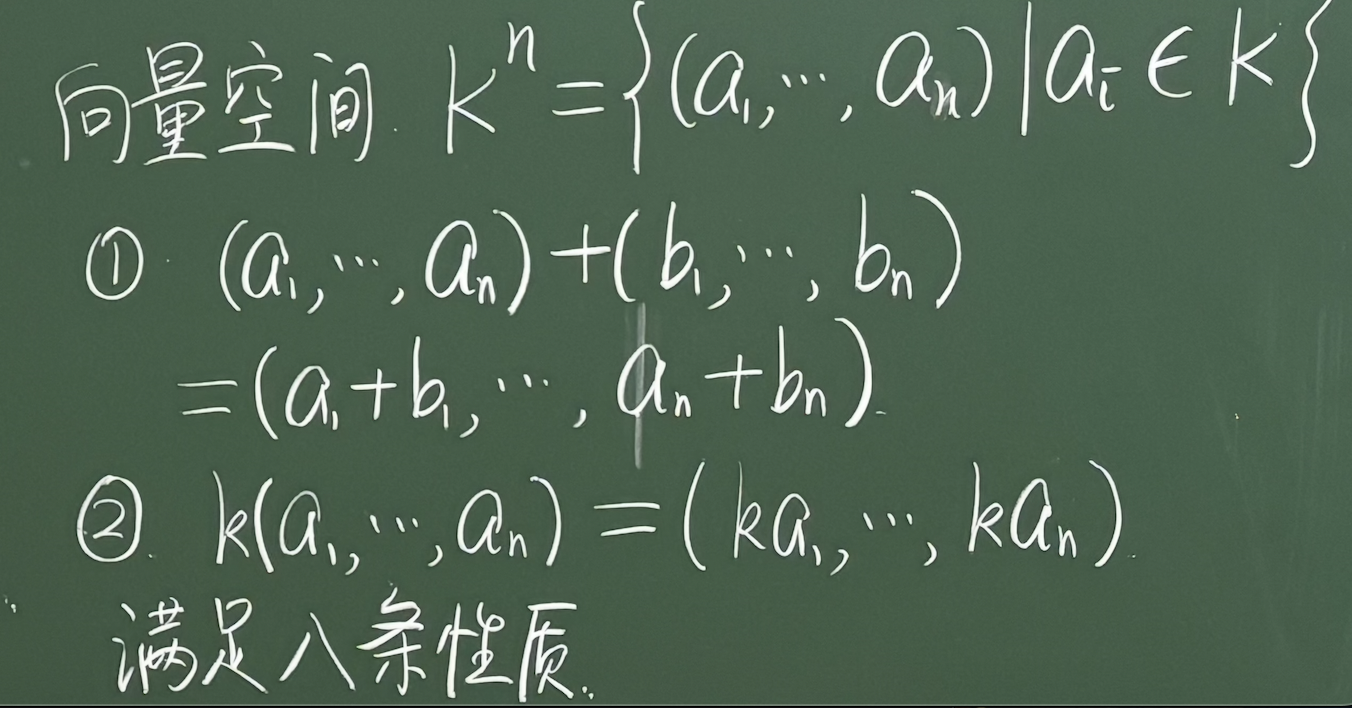 向量空间. Kⁿ = {(a₁,⋯, aₙ) | aᵢ ∈ K}
① (a₁,⋯, aₙ) + (b₁,⋯, bₙ)
= (a₁+b₁,⋯, aₙ+bₙ).
②. k(a₁,⋯,aₙ) = (ka₁,⋯, kaₙ).
满足八条性质.